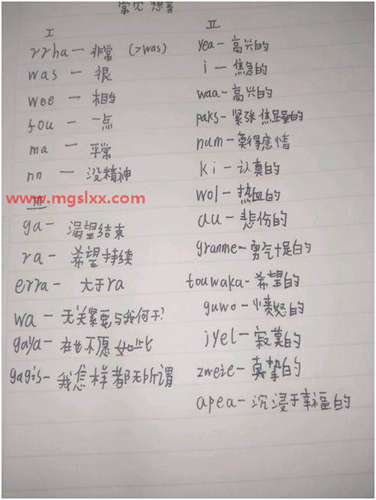 常见想音
I
rrha — 非常 (>was)
was — 很
wee — 相当
fou — 一点
ma — 平常
nn — 没精神
www.mgslxx.com
III
ga — 渴望结束
ra — 希望持续
erra — 大于ra
wa — 无关紧要与我何干?
gaya — 在也不愿如此
gagis — 我怎样都无所谓
II
yea — 高兴的
i — 焦急的
waa — 高兴的
paks — 紧张焦虑的
num — 莫得感情
ki — 认真的
wol — 热血的
au — 悲伤的
granme — 勇气十足的
touwaka — 希望的
guwo — 愤怒的
jyel — 寂寞的
zweie — 真挚的
apea — 沉浸于幸福的